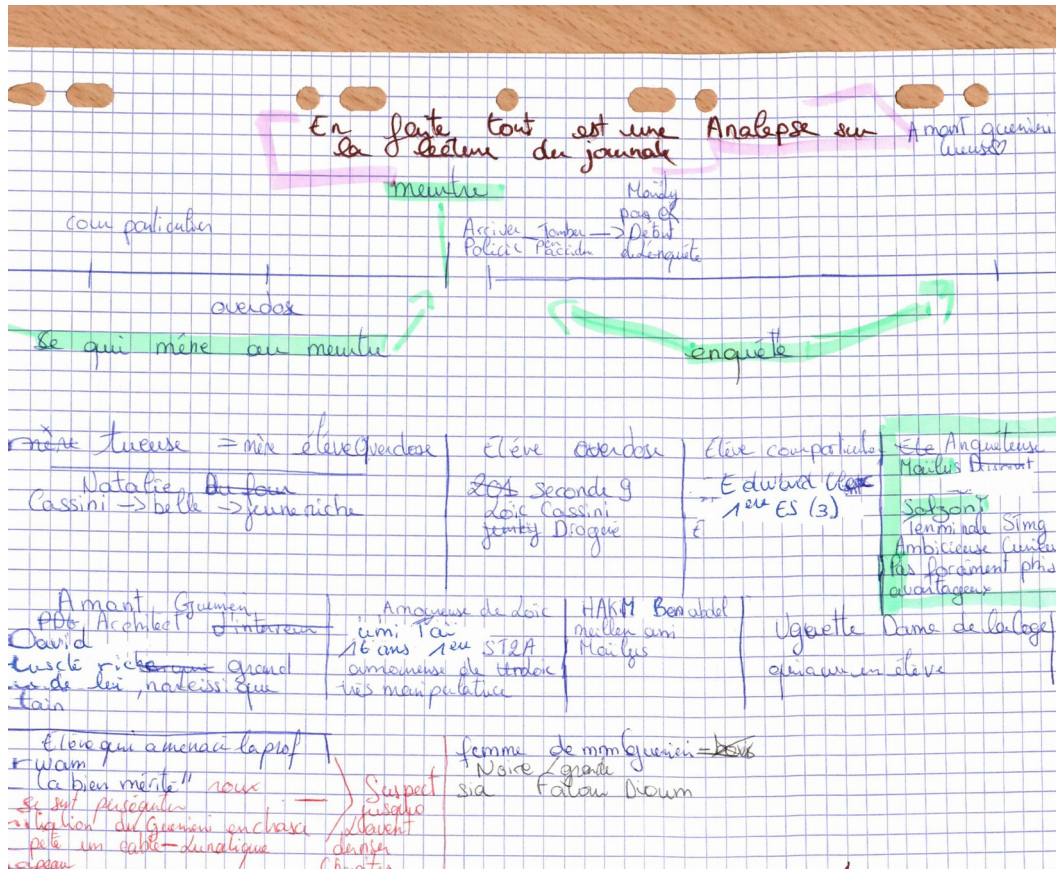 En faite tout est une Analepse sur
la lecture du journale
Amant guerrien
tueuse♡
meurtre
cour particulier
Mandy
pas ok
Arriver Tomber → Début
Policie en Paccidu d'denquète
overdose
Se qui mène au meurtre
enquète
mère tueuse = mère élève Overdose
Natalie Du four
Cassini → belle → jeune riche
Elève overdose
201 Seconde 9
Loïc Cassini
junky Droguie
Elève courparticulié
Edward
1ère ES (3)
E
Ele Anquèteuse
Mailys
Salzoni
Terminale STmg
Ambicieuse Curieu
Pas forcément phis
avantageux
Amant Guerrien
PDG Architect d'intereur
David
musclé riche grand
de lui, narcissique
tain
Amoureuse de Loïc
Umi Taï
16 ans 1ère ST2A
amoureuse de
très manipulatrice
HAKIM Benabdel
meilleu ami
Mailys
Uguette Dame de la loge
élève
Elève qui a menacé la prof
rwam
"la bien mérité" roux
se sent perséguter
du Guerrieni enchasa
pète un cable - Lunatique
apeau
Suspect
jusquo
davent
dernier
Chapitre
femme de mm Guerrieni =
Noire / grande
sia Fatou Dioum